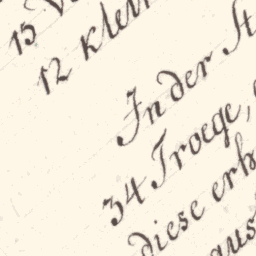 15
12 klein
In der St
34 Troege,
diese erh
aus